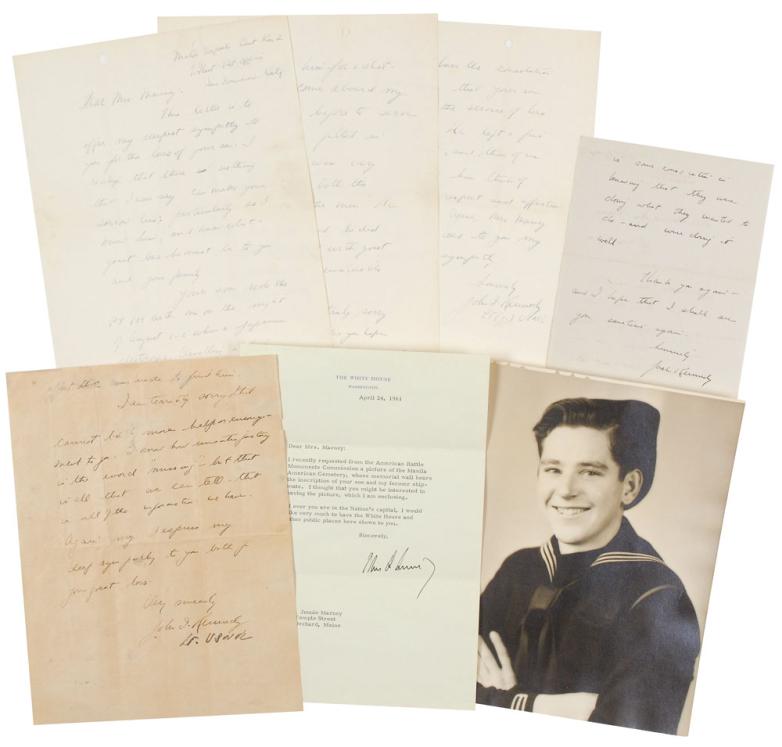 Dear Mrs. Marney.
This letter is to
offer my deepest sympathy to
you for the loss of your son. I
realize that there is nothing
that I can say can make your
sorrow less; particularly as I
knew him; and know what a
great loss he must be to you
and your family
Your son rode the
PT 109 with me on the night
of August 1-2 when a Japanese
him for a
come aboard my
before to serve
was very
both the
the men. He
he did
with great
truly sorry
you hope
have the consolation
that your son
the service of his
He left a
and those of us
him
respect and affection
Mrs. Marney
to you my
sympathy,
Sincerely
John F. Kennedy
Lt. (j.g.) USNR
is some consolation in
knowing that they were
doing what they wanted to
do - and were doing it
well.
Thank you again -
and I hope that I shall see
you sometime again.
Sincerely
John Kennedy
effort was made to find him.
I am terribly sorry that I
cannot be of more help or encourage-
ment to you.
is the word missing - but that
is all that we can tell - that
is all of the information we have.
Again my I express my
deep sympathy to you both for
your great loss.
Very sincerely
John F. Kennedy
Lt. USNR
THE WHITE HOUSE
WASHINGTON
April 24, 1961
Dear Mrs. Marney:
I recently requested from the American Battle
Monuments Commission a picture of the Manila
American Cemetery, whose memorial wall bears
the inscription of your son and my former ship-
mate. I thought that you might be interested in
having the picture, which I am enclosing.
ever you are in the Nation's capital, I would
like very much to have the White House and
other public places here shown to you.
Sincerely,
Jennie Marney
Temple Street
Orchard, Maine